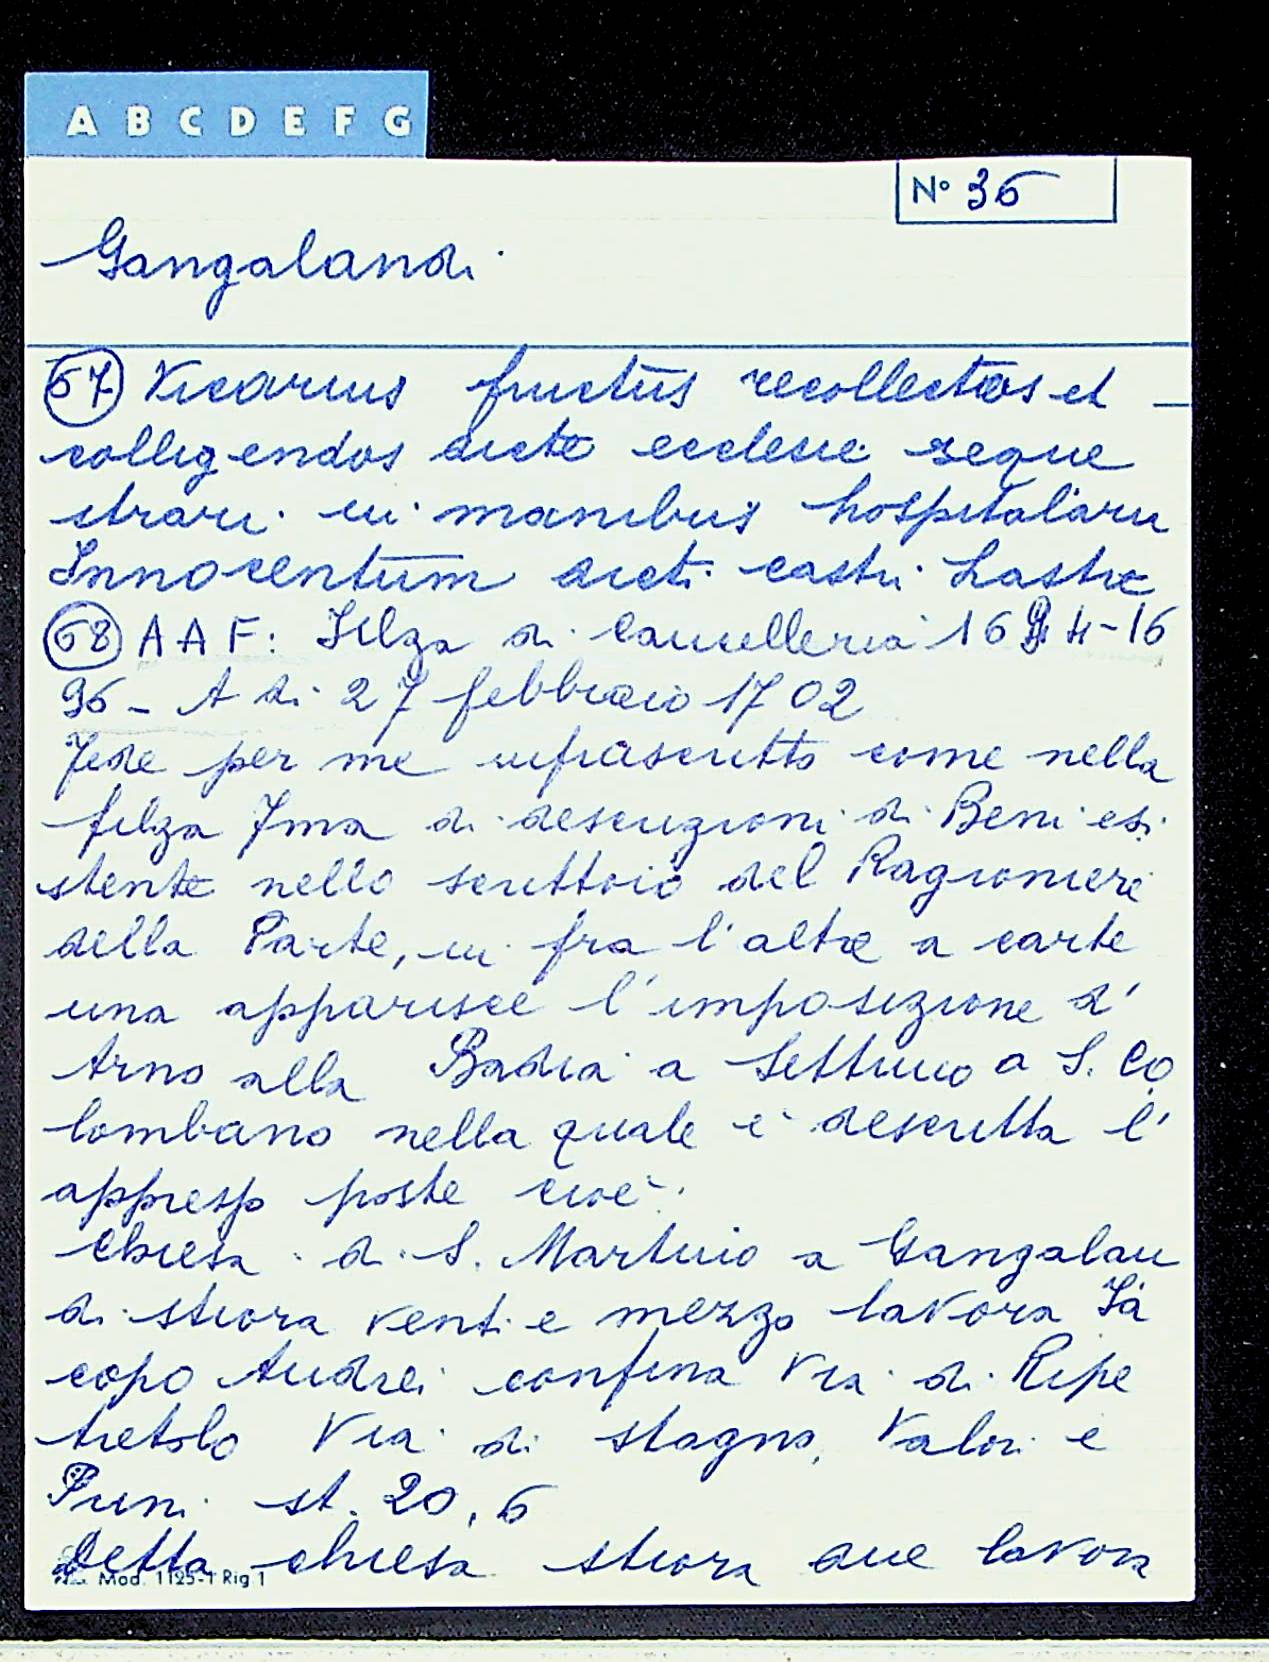 A B C D E F G
N° 36
Gangalandi
67 Vicarius fructus recollectos et
colligendos dicte ecclesie seque
strari in manibus hospitalarii
Innocentum dicti castri Lastre
68 AAF: Filza di Cancelleria 16 4-16
96 - A di 27 febbraio 1702
Fede per me infrascritto come nella
filza Ima di descrizioni di Beni esi
stente nello scrittoio del Ragionieri
della Parte, in fra l'altre a carte
una apparisce l'imposizione d'
Arno alla Badia a Settimo a S. Co
lombano nella quale è descritta l'
appresso poste cioè:
Chiesa di S. Martino a Gangalan
di stiora venti e mezzo lavora Ia
copo Andrei confina Via di Ripe
tretolo Via di stagno, Valori e
Puni st. 20,6
Detta chiesa stiora due lavora
Mod. 1125-1 Rig.1